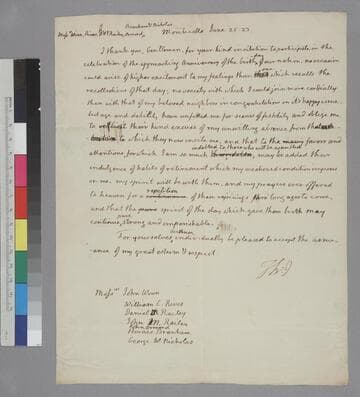 Monticello June 25. 23.
I thank you, Gentlemen, for your kind invitation to participate in the
celebration of the approaching Anniversary of the birth day of our nation. no event
could arise of higher excitement to my feelings than which recalls the
recollections of that day; no society with which I could join more cordially
than with that of my beloved neighbors in congratulation on it's happy issue.
but age and debility have unfitted me for scenes of festivity and oblige me
to request their kind excuse of my unwilling absence from that
to which they now invite me, and that to the many favors and
added to those he will be expected
attentions for which I am so much, may be added their
indulgence of habits of retirement which my weakened condition imposes
on me. my spirit will be with them, and my prayers ever offered
repetition
to heaven for a of their rejoicings thro' long ages to come,
and that the spirit of the day which gave them birth may
pure
continue, strong and imperishable.
For yourselves individually be pleased to accept the assur-
ance of my great esteem & respect
Th: J
Mess.rs John Winn
William C. Rives
Daniel M. Railey
John M. Railey
John Ormond
Horace Branham
George W. Nicholas